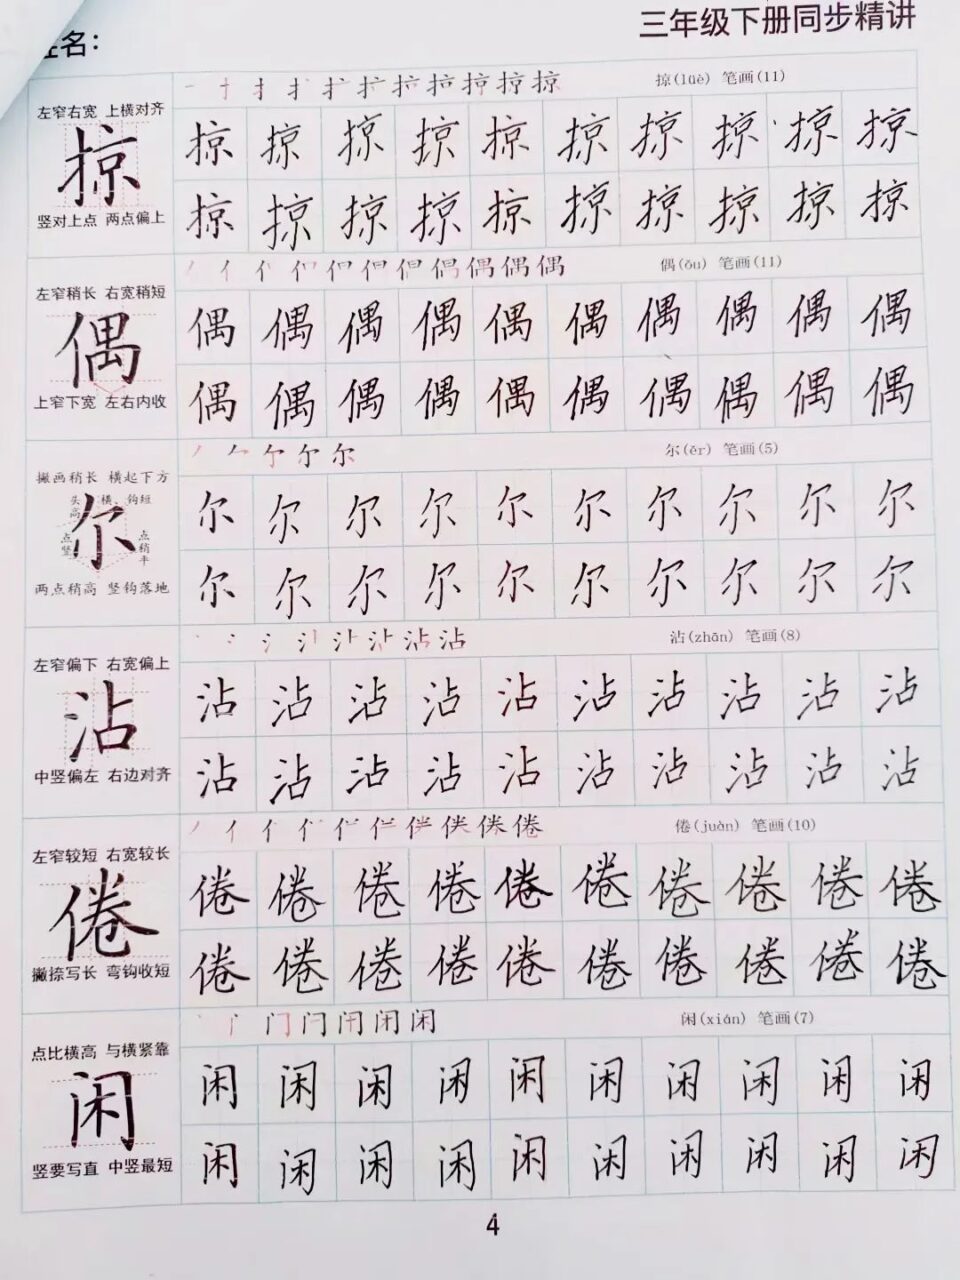 名：
三年级下册同步精讲
左窄右宽 上横对齐
掠
竖对上点 两点偏上
掠(lüè) 笔画(11)
掠 掠 掠 掠 掠 掠 掠 掠 掠 掠
掠 掠 掠 掠 掠 掠 掠 掠 掠 掠
左窄稍长 右宽稍短
偶
上窄下宽 左右内收
偶(ǒu) 笔画(11)
偶 偶 偶 偶 偶 偶 偶 偶 偶 偶
偶 偶 偶 偶 偶 偶 偶 偶 偶 偶
撇画稍长 横起下方
头高 横 钩短
尔
点竖 点稍平
两点稍高 竖钩落地
尔(ěr) 笔画(5)
尔 尔 尔 尔 尔 尔 尔 尔 尔 尔
尔 尔 尔 尔 尔 尔 尔 尔 尔 尔
左窄偏下 右宽偏上
沾
中竖偏左 右边对齐
沾(zhān) 笔画(8)
沾 沾 沾 沾 沾 沾 沾 沾 沾 沾
沾 沾 沾 沾 沾 沾 沾 沾 沾 沾
左窄较短 右宽较长
倦
撇捺写长 弯钩收短
倦(juàn) 笔画(10)
倦 倦 倦 倦 倦 倦 倦 倦 倦 倦
倦 倦 倦 倦 倦 倦 倦 倦 倦 倦
点比横高 与横紧靠
闲
竖要写直 中竖最短
闲(xián) 笔画(7)
闲 闲 闲 闲 闲 闲 闲 闲 闲 闲
闲 闲 闲 闲 闲 闲 闲 闲 闲 闲
4